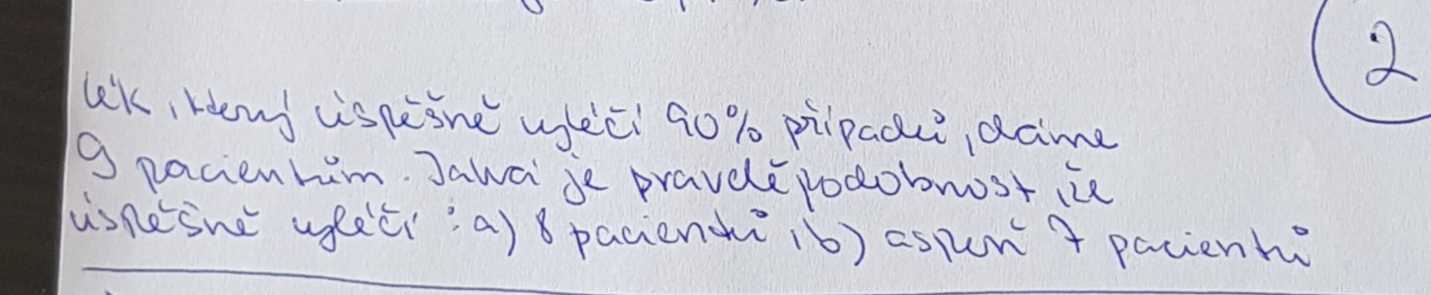 2
lék, který úspěšně vyléčí 90% případů, dáme
9 pacientům. Jaká je pravděpodobnost, že
úspěšně vyléčí: a) 8 pacientů, b) aspoň 7 pacientů